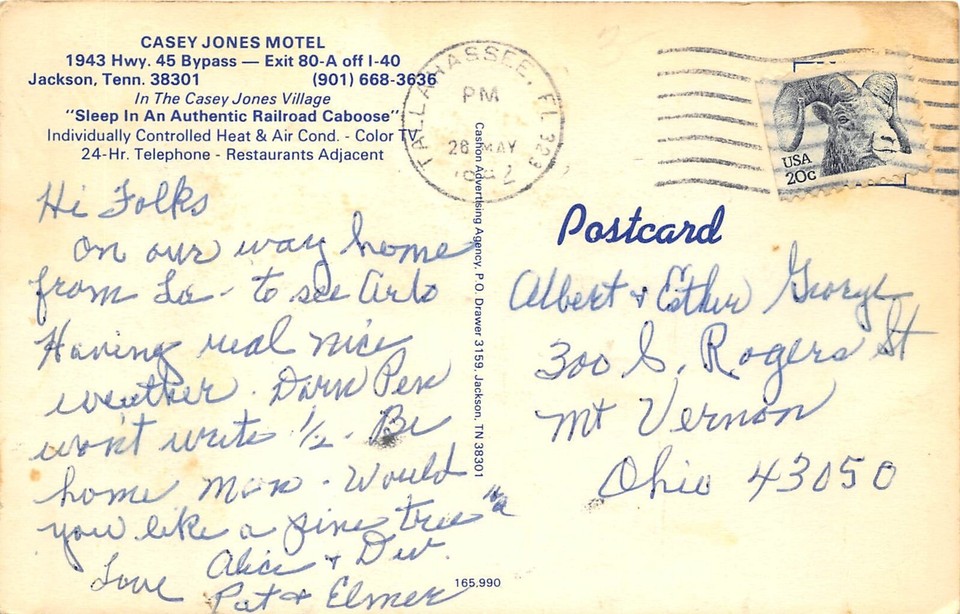 CASEY JONES MOTEL
1943 Hwy. 45 Bypass — Exit 80-A off I-40
Jackson, Tenn. 38301 (901) 668-3636
In The Casey Jones Village
"Sleep In An Authentic Railroad Caboose"
Individually Controlled Heat & Air Cond. - Color TV
24-Hr. Telephone - Restaurants Adjacent
TALLAHASSEE, FL 323
PM
26 MAY
USA
20c
Hi Folks
on our way home
from La - to see
Having real nice
weather. Darn Pen
won't write 1/2. Be
home Mon. Would
you like a pine tree
Love Alice &
Pat & Elmer
Cashon Advertising Agency, P.O. Drawer 3159, Jackson, TN 38301
Postcard
Albert & Esther George
300 S. Rogers St
Mt Vernon
Ohio 43050
165,990